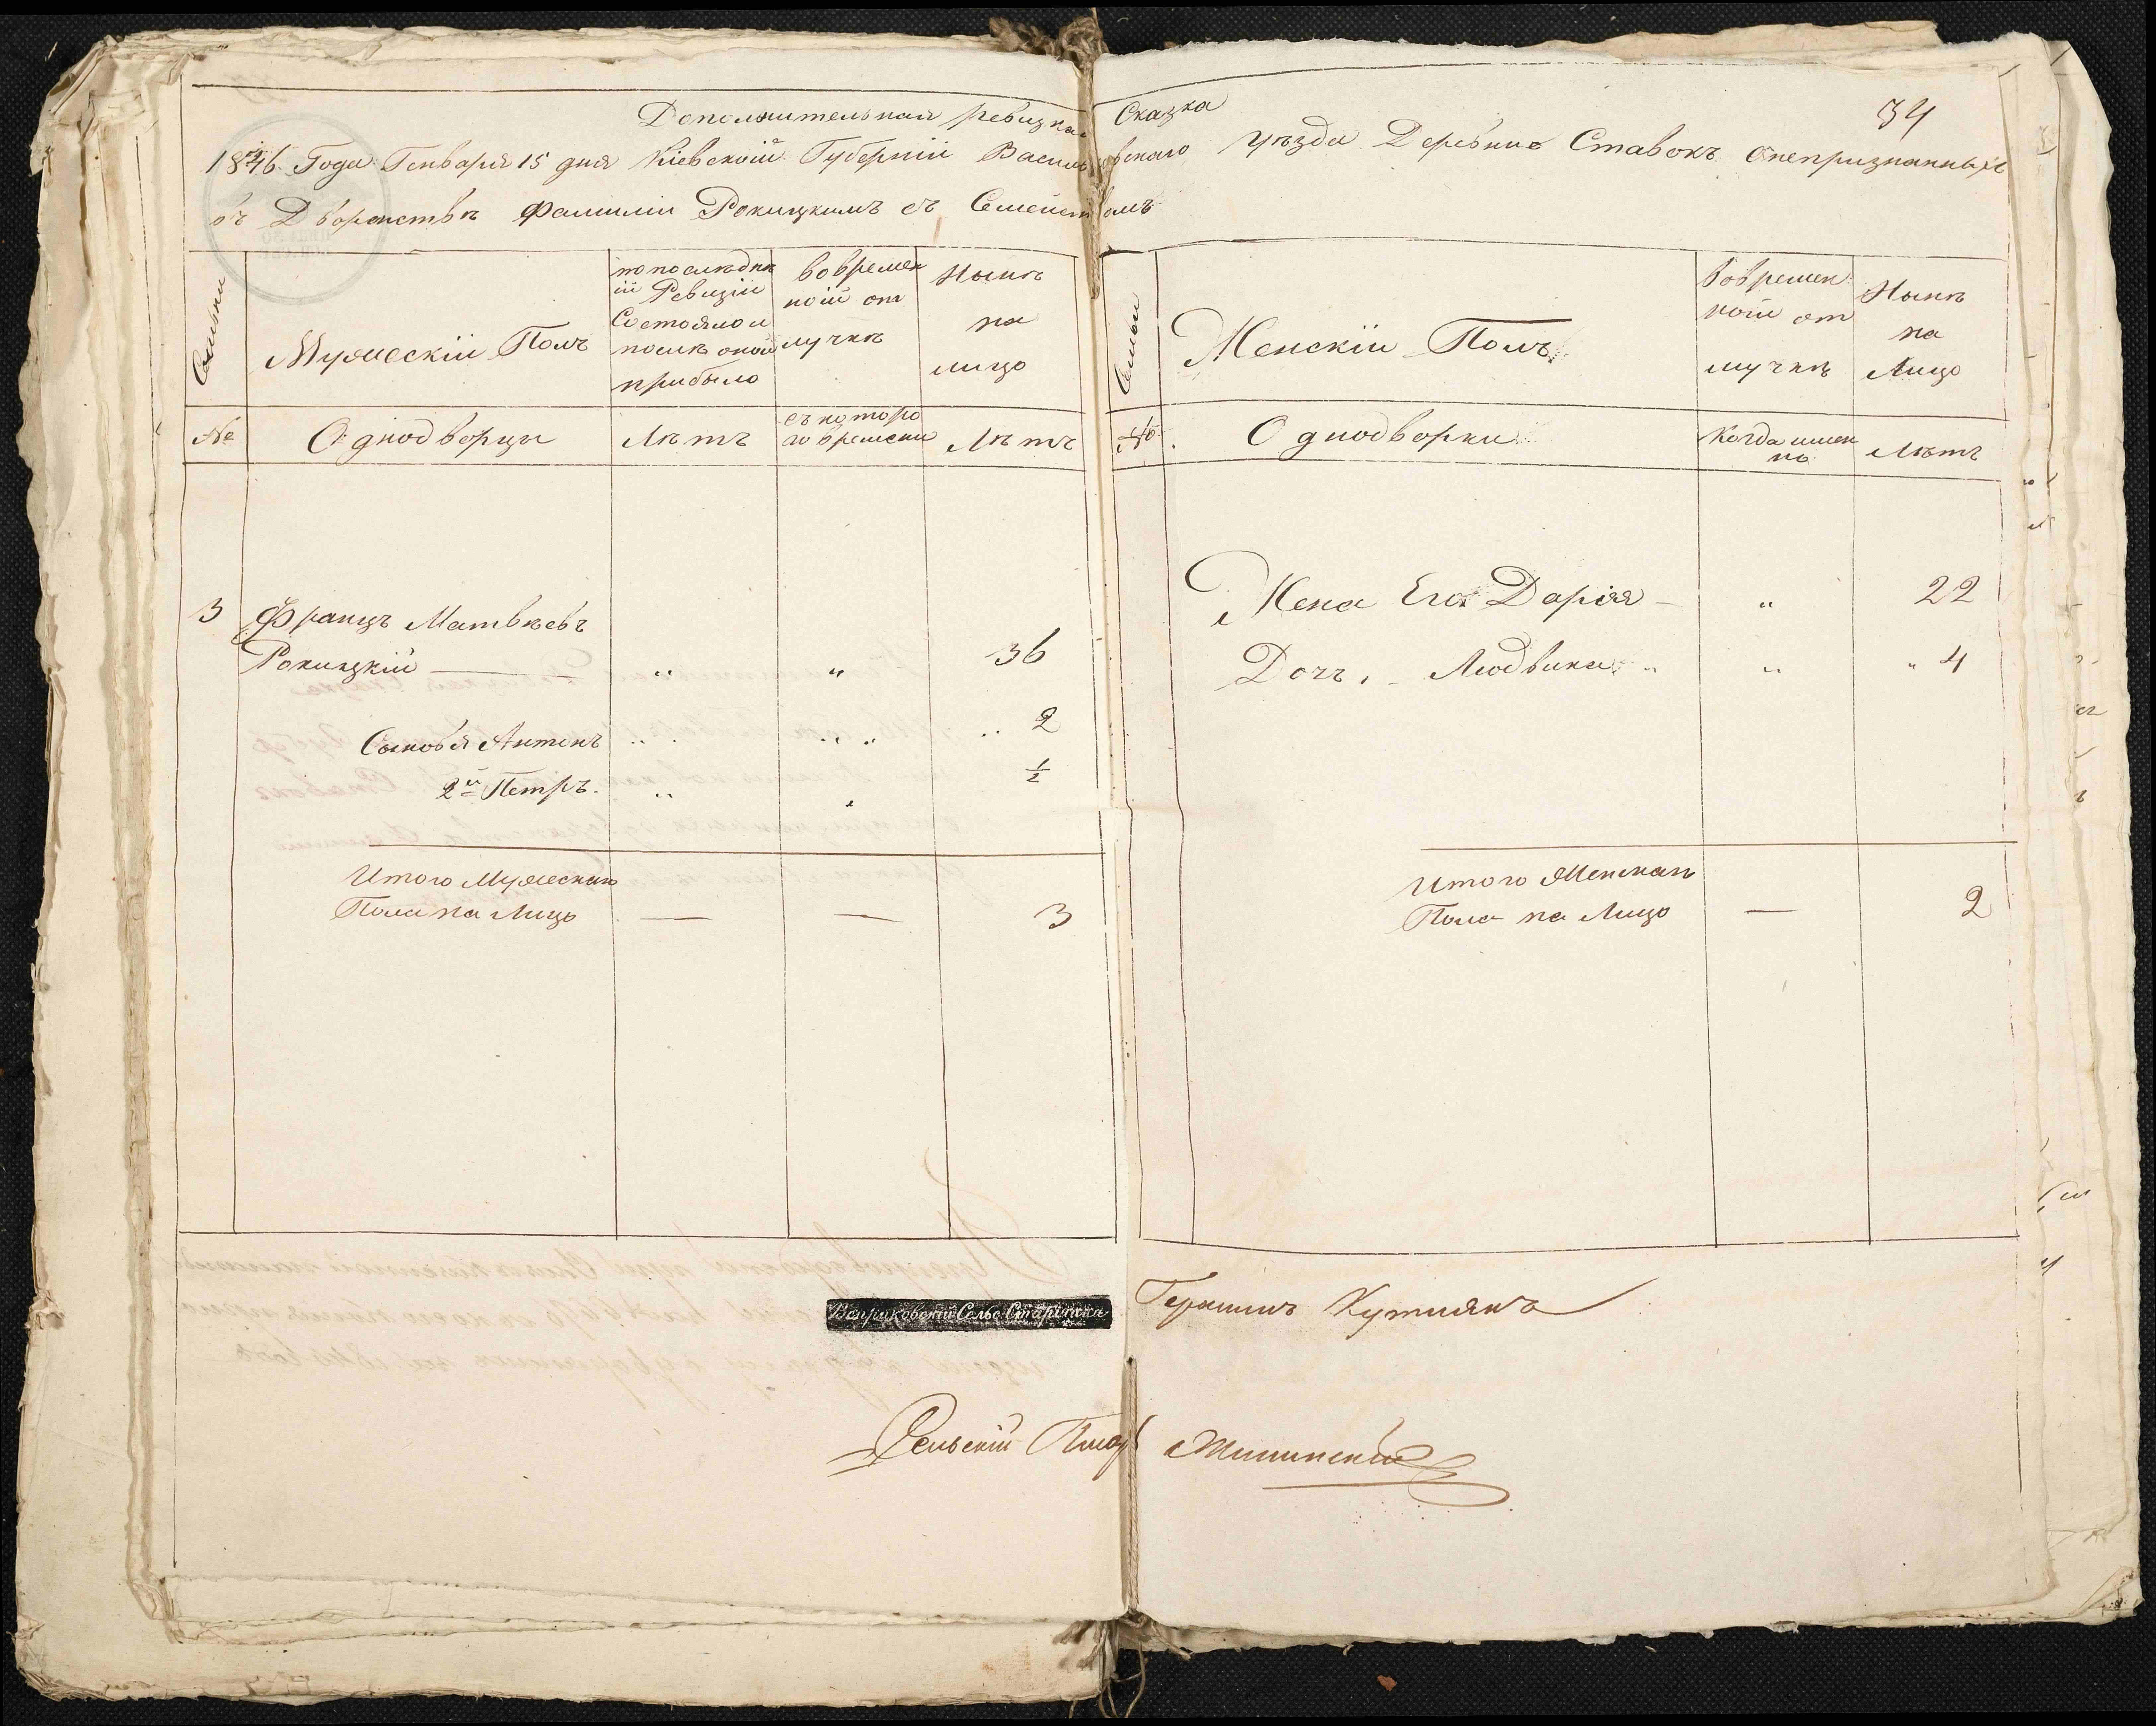 Дополнительная ревизкая Сказка
34
1846 Года Генваря 15 дня Кіевской Губерніи Васильковскаго уѣзда Деревни Ставокъ Онепризнанныхъ
въ Дворянствѣ Фамиліи Рокицкимъ съ Семействомъ
Семьи
Мужескій Полъ
по послѣдней Ревизіи Состояло и послѣ оной прибыло
во временной отлучкѣ
Нынѣ на лицо
Семьи
Женскій Полъ
Во временной отлучкѣ
Нынѣ на Лицо
№ Однодворцы Лѣтъ съ котораго времени Лѣтъ
№ Однодворки Когда именно Лѣтъ
3 Францъ Матвѣевъ
Рокицкій — " " 36
Сыновья Антонъ " " 2
2й Петръ " " ½
Итого Мужескаго
Пола на Лицо — — 3
Жена Его Дарія — " 22
Дочъ, Людвика " " 4
Итого Женскаго
Пола на Лицо — 2
Веприковскій Сельс. Старшина Герасимъ
Сельскій Писарь